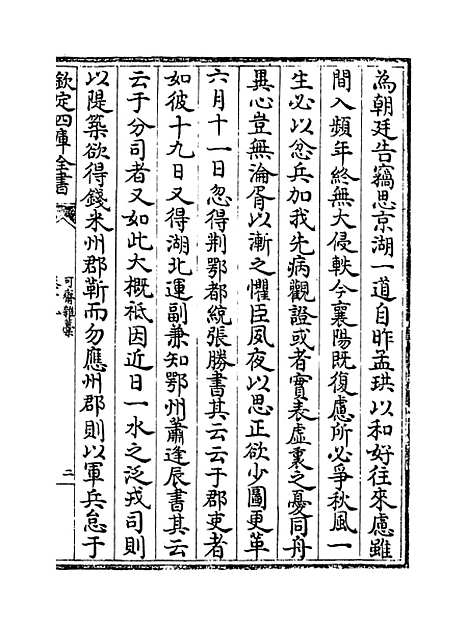 為朝廷告竊思京湖一道自昨孟珙以和好往來慮雖
間入頻年終無大侵軼今襄陽既復慮所必爭秋風一
生必以忿兵加我先病觀證或者實表虛裏之憂同舟
異心豈無淪胥以漸之懼臣夙夜以思正欲少圖更革
六月十一日忽得荆鄂都統張勝書其云云于郡吏者
如彼十九日又得湖北運副兼知鄂州蕭逢辰書其云
云于分司者又如此大概祗因近日一水之泛戎司則
以隄築欲得錢米州郡靳而勿應州郡則以軍兵怠于
欽定四庫全書
可齋雜藁
二